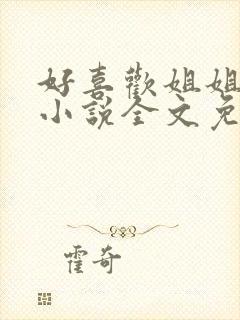 好喜歡姐姐
小說全文免
霍奇